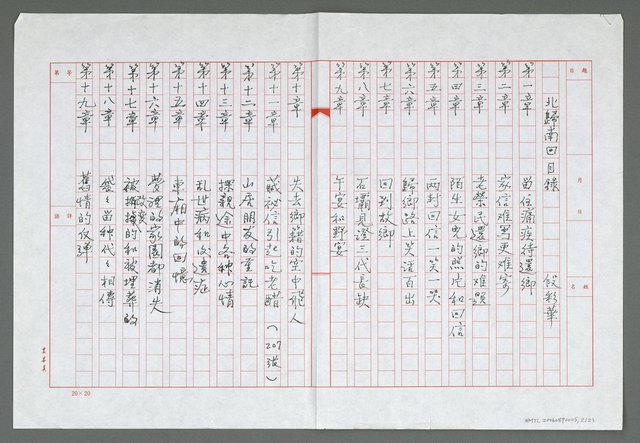 北歸南回目錄
第一章 留住痛疫待還鄉
第二章 家信难寫更难寄
第三章 老榮民還鄉的难題
第四章 陌生女兒的照片和回信
第五章 两封回信一笑一哭
第六章 歸鄉路上笑谈百出
第七章 回到故鄉
第八章 石霸見證三代長缺
第九章 午宴和野宴
第十章 失去鄉籍的空中飛人
第十一章 藏祕信引起吃老醋(207張)
第十二章 山居朋友的筆記
第十三章 探親途中各种心情
第十四章 乱世病和后遺症
第十五章 東廂中的回憶
第十六章 夢裡的家園都消失
第十七章 被掉的和被埋葬的
改变
第十八章 袋々留种代々相傳
第十九章 舊情的反弹
題目
月 日
姓名
等第
評語
20×20
HMTL 20060890005, 2/23